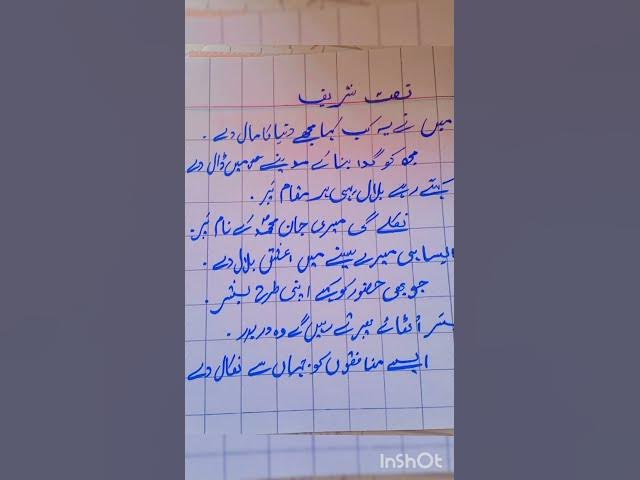 نعت شریف
میں نے یہ کب کہا مجھے دنیا کا مال دے۔
مجھ کو گدا بنا کے مدینے میں ڈال دے
کہتے رہے بلال یہی ہر مقام پر۔
نکلے گی میری جان محمدؐ کے نام پر۔
ایسا ہی میرے سینے میں عشق بلال دے۔
جو بھی حضور کو کہے اپنی طرح بشر۔
بستر اُٹھائے پھرتے رہیں گے وہ در بدر۔
ایسے منافقوں کو جہاں سے نکال دے
InShOt